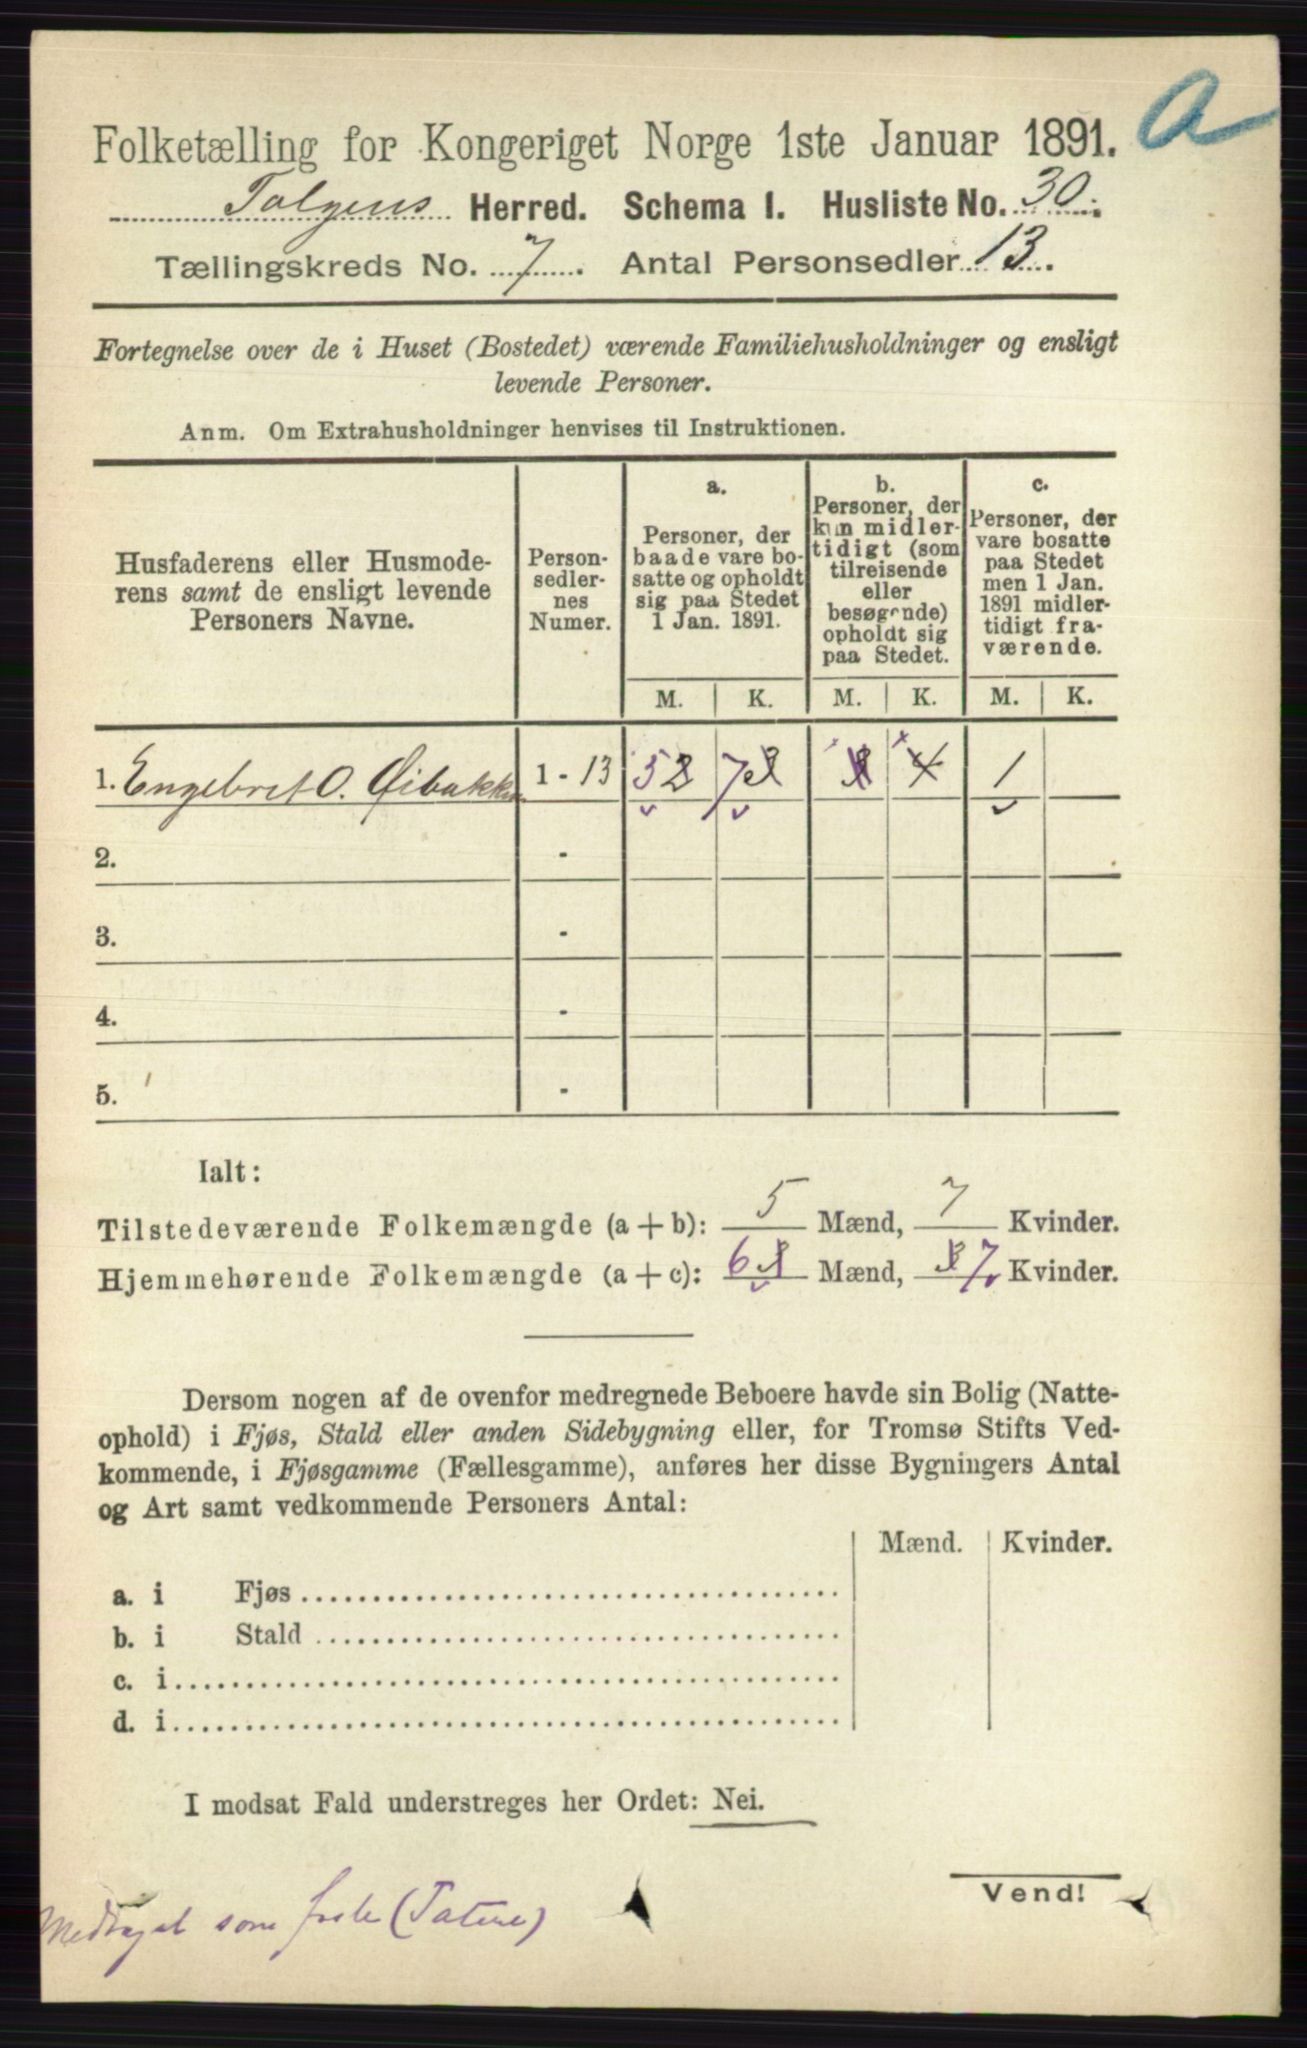 a
Folketælling for Kongeriget Norge 1ste Januar 1891.
Tolgens Herred. Schema I. Husliste No. 30.
Tællingskreds No. 7. Antal Personsedler 13.
Fortegnelse over de i Huset (Bostedet) værende Familiehusholdninger og ensligt
levende Personer.
Anm. Om Extrahusholdninger henvises til Instruktionen.
Husfaderens eller Husmode-
rens samt de ensligt levende
Personers Navne.
Person-
sedler-
nes
Numer.
a.
Personer, der
baade vare bo-
satte og opholdt
sig paa Stedet
1 Jan. 1891.
b.
Personer, der
kun midler-
tidigt (som
tilreisende
eller
besøgende)
opholdt sig
paa Stedet.
c.
Personer, der
vare bosatte
paa Stedet
men 1 Jan.
1891 midler-
tidigt fra-
værende.
M. K. M. K. M. K.
1. Engebret O. Øibakken 1 - 13 5 2 7 4 1
2. -
3. -
4. -
5. -
Ialt:
Tilstedeværende Folkemængde (a + b): 5 Mænd, 7 Kvinder.
Hjemmehørende Folkemængde (a + c): 6 Mænd, 7 Kvinder.
Dersom nogen af de ovenfor medregnede Beboere havde sin Bolig (Natte-
ophold) i Fjøs, Stald eller anden Sidebygning eller, for Tromsø Stifts Ved-
kommende, i Fjøsgamme (Fællesgamme), anføres her disse Bygningers Antal
og Art samt vedkommende Personers Antal:
Mænd. Kvinder.
a. i Fjøs
b. i Stald
c. i
d. i
I modsat Fald understreges her Ordet: Nei.
Vend!
Medtaget som faste (Tatere)